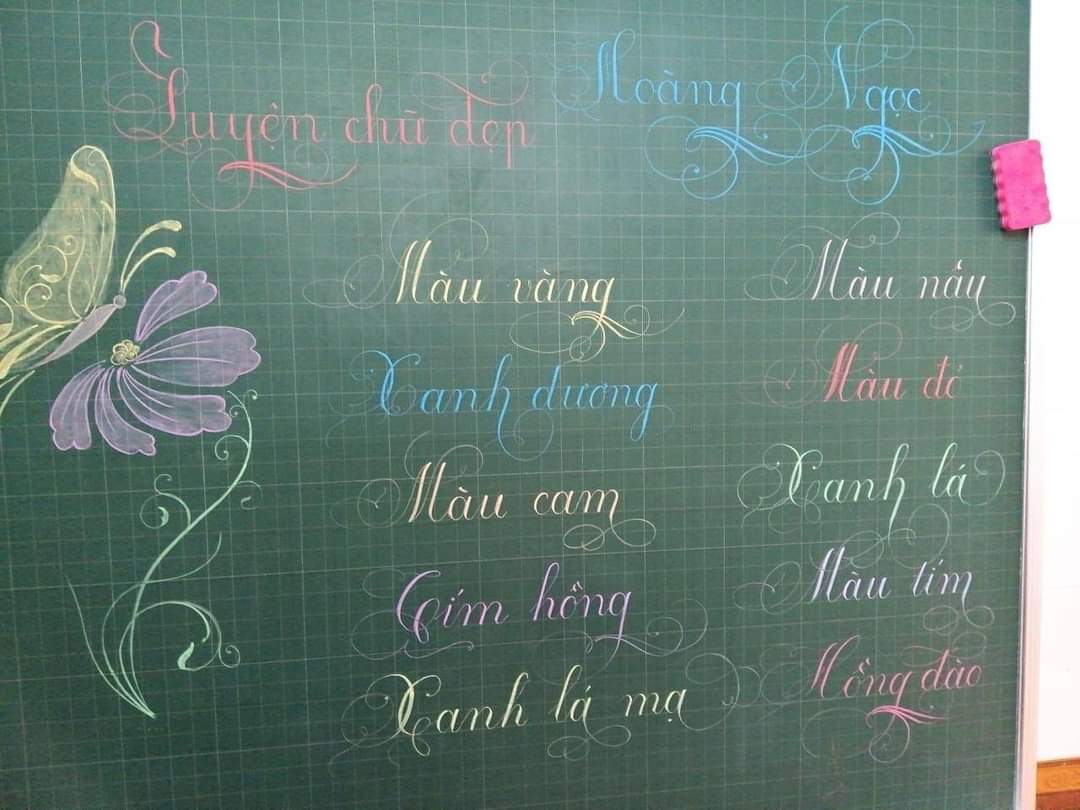 Luyện chữ đẹp Hoàng Ngọc
Màu vàng Màu
Xanh dương Màu đỏ
Màu cam Xanh lá
Tím hồng Màu tím
Xanh lá mạ Hồng đào